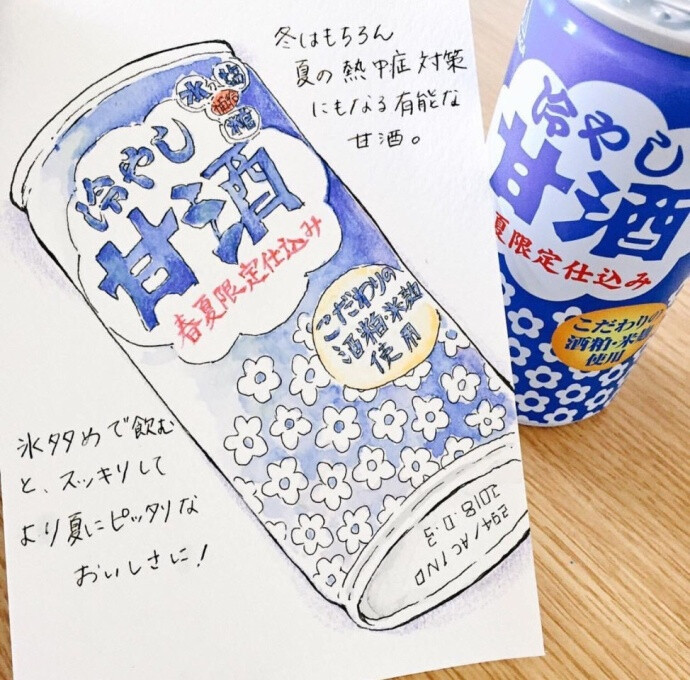 冬はもちろん
夏の熱中症対策
にもなる有能な
甘酒。
水分
塩
糖
冷やし
甘酒
春夏限定仕込み
こだわりの
酒粕・米麹
使用
氷多めで飲む
と、スッキリして
より夏にピッタリな
おいしさに！
294/ACIND
2018.11.3
冷やし
甘酒
夏限定仕込み
こだわりの
酒粕・米麹
使用